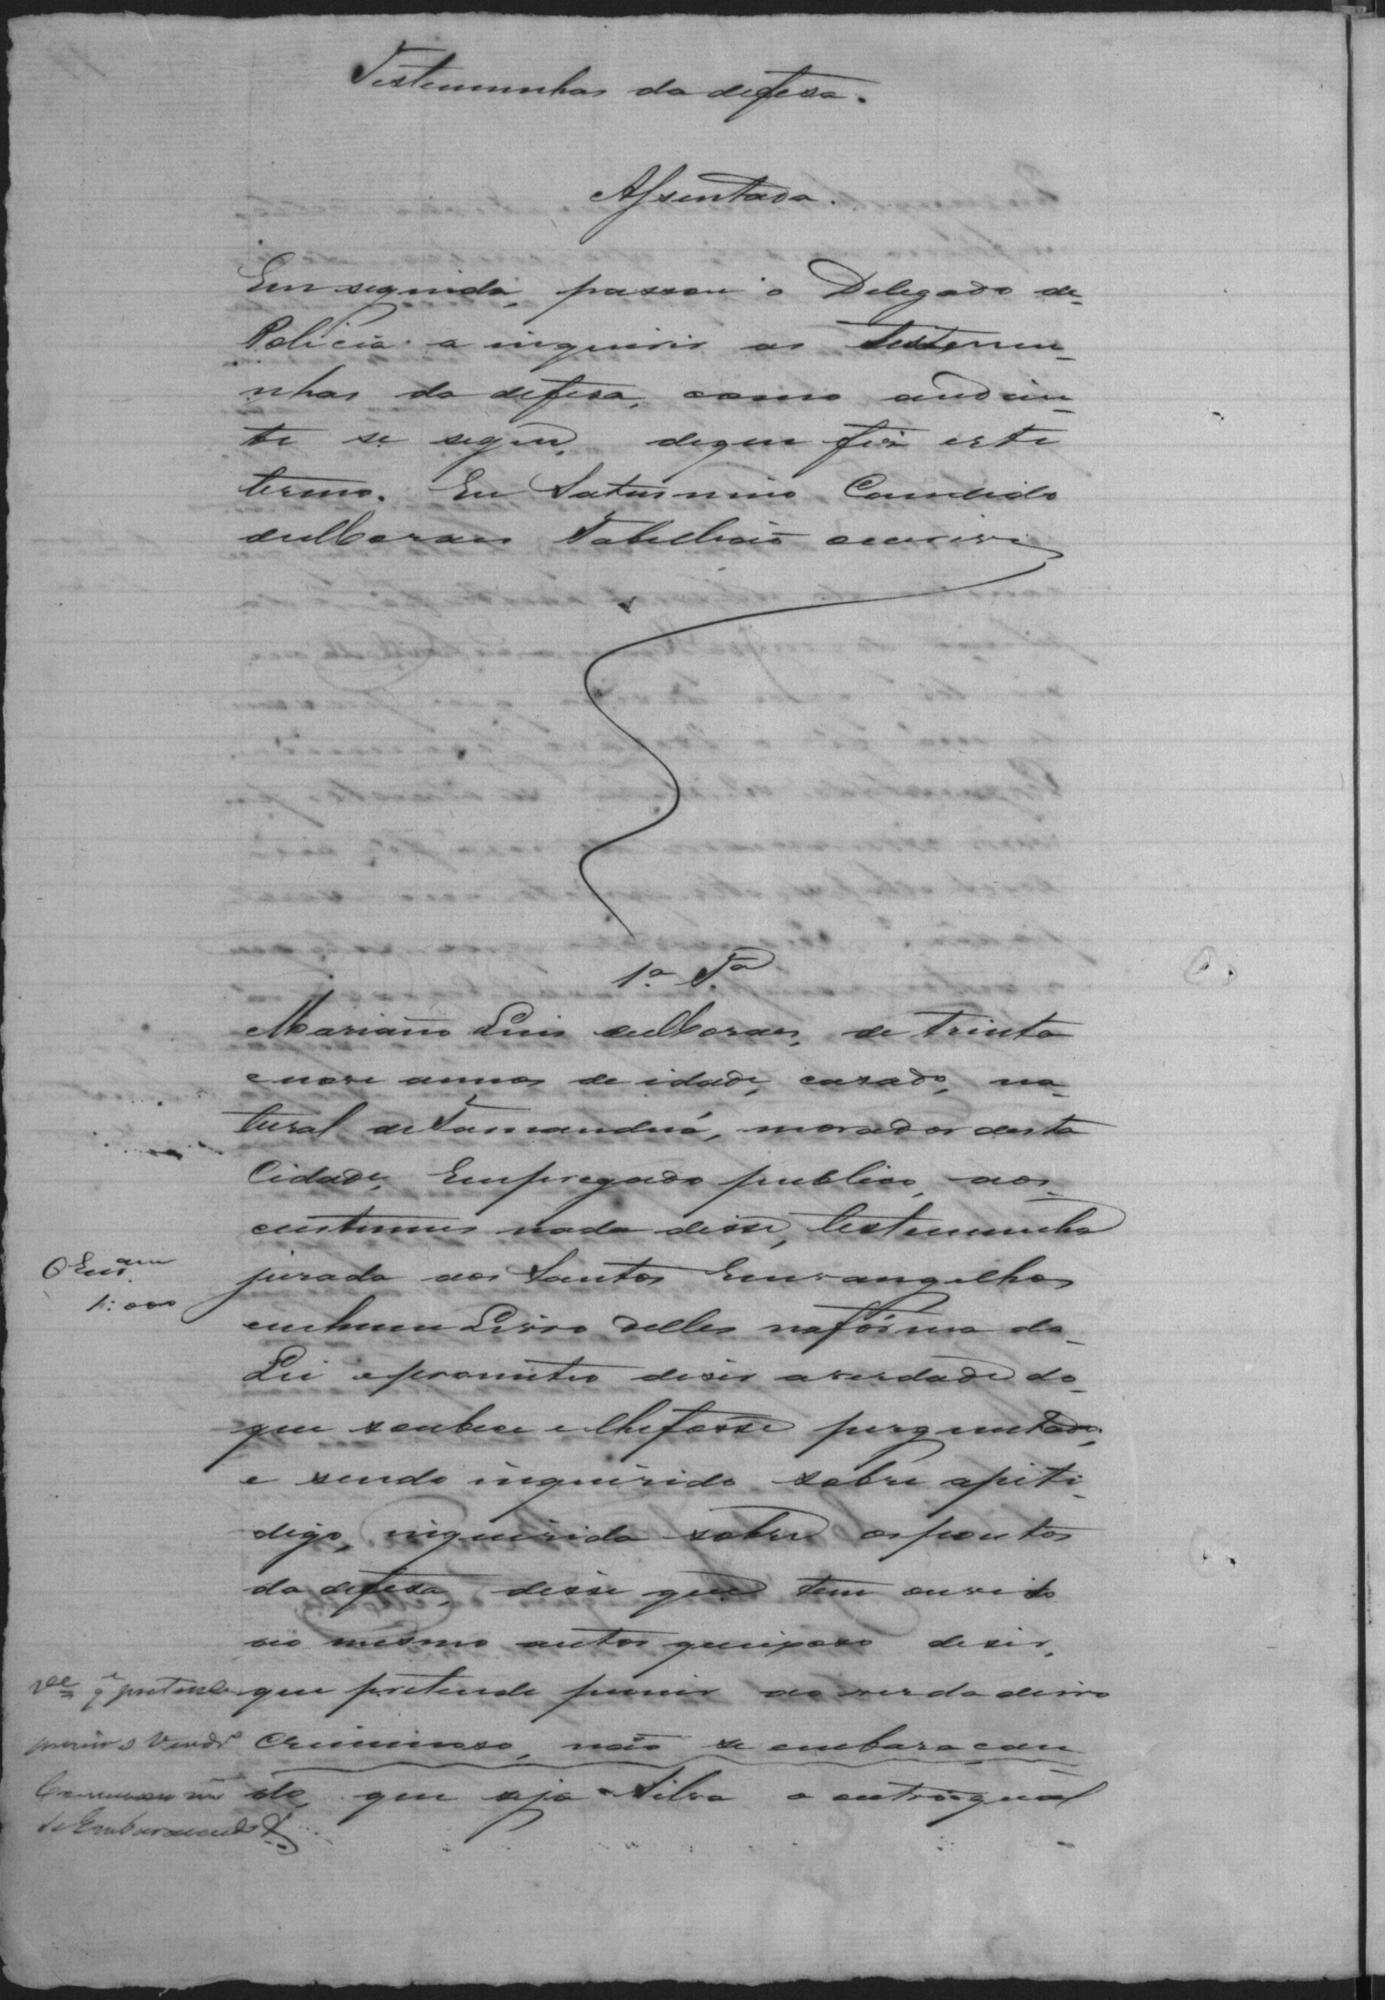 Testemunhas da defesa.
Assentada.
Em seguida, passou o Delegado de
Policia a inquirir as testemu-
nhas da defesa, como audian-
te se segue, doque fis este
termo. Eu Saturnino Candido
de Moraes Tabelliaõ escrivi
1.ª T.ª
Mariano Luis de Moraes, de trinta
e nove annos de idade, casado, na-
tural de Tamanduá, morador desta
Cidade, Empregado publico, aos
custumes nada disse, testemunha
jurada aos Santos Evangelhos
em hum Livro delles na fórma da
Lei e prometeo diser a verdade do
que soubece e lhe fosse perguntado,
e sendo inquirido sobre apiti-
digo, inquirida sobre os pontos
da defesa, disse que tem ouvido
ao mesmo autor queixoso diser,
que pretende punir ao verdadeiro
Criminoso, naõ se embaraçan-
do, que seja Silva o outro qual
1:000
q' pretende
punir o Verdr.º
Criminoso
se Embaraçando